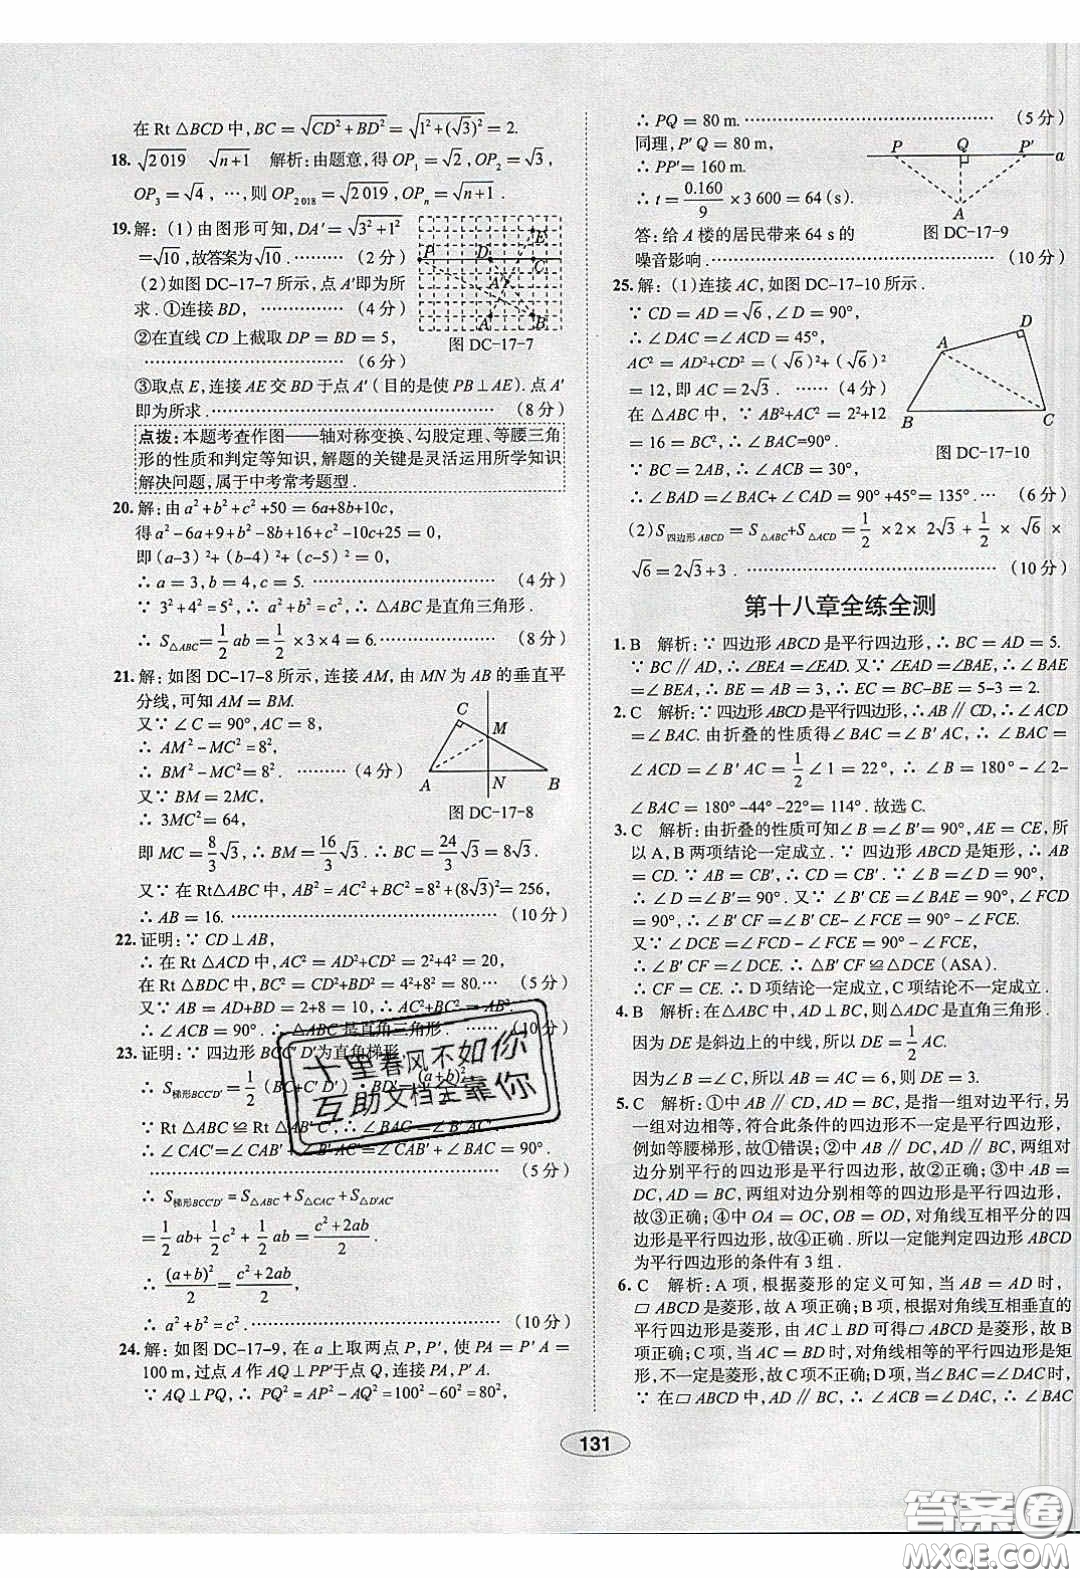 在 Rt △BCD 中, BC = √(CD²+BD²) = √(1²+(√3)²) = 2.
18. √2019 √(n+1) 解析:由题意,得 OP₁=√2, OP₂=√3,
OP₃=√4, …,则 OP₂₀₁₈=√2019, OPₙ=√(n+1) .
19. 解: (1) 由图形可知, DA′=√(3²+1²)
=√10,故答案为√10 . ………… (2 分)
(2) 如图 DC-17-7 所示, 点 A′即为所
求 . ①连接 BD, ………… (4 分)
②在直线 CD 上截取 DP = BD = 5,
………………………… (6 分)
P D E C A′ A B
图 DC-17-7
③取点 E,连接 AE 交 BD 于点 A′ ( 目的是使 PB⊥AE). 点 A′
即为所求 . ………………………………… (8 分)
点拨: 本题考查作图——轴对称变换、勾股定理、等腰三角
形的性质和判定等知识, 解题的关键是灵活运用所学知识
解决问题,属于中考常考题型 .
20. 解: 由 a²+b²+c²+50 = 6a+8b+10c,
得 a²-6a+9+b²-8b+16+c²-10c+25 = 0,
即 (a-3)²+(b-4)²+(c-5)² = 0.
∴ a = 3, b = 4, c = 5. ………………………… (4 分)
∵ 3²+4² = 5², ∴ △ABC 是直角三角形 .
∴ S△ABC = 1/2 ab = 1/2 ×3×4 = 6. ……………… (8 分)
21. 解: 如图 DC-17-8 所示, 连接 AM, 由 MN 为 AB 的垂直平
分线, 可知 AM = BM.
又∵ ∠C = 90°, AC = 8,
∴ AM²-MC² = 8²,
∴ BM²-MC² = 8². ……… (4 分)
又∵ BM = 2MC,
∴ 3MC² = 64,
C M A N B
图 DC-17-8
即 MC = 8/3 √3, ∴ BM = 16/3 √3. ∴ BC = 24/3 √3 = 8√3.
又∵ 在 Rt△ABC 中, AB² = AC²+BC² = 8²+(8√3)² = 256,
∴ AB = 16. ………………………………… (10 分)
22. 证明: ∵ CD⊥AB,
∴ 在 Rt △ACD 中, AC² = AD²+CD² = 2²+4² = 20,
在 Rt △BDC 中, BC² = CD²+BD² = 4²+8² = 80. …… (5 分)
又∵ AB = AD+BD = 2+8 = 10, ∴
∴ ∠ACB = 90°. ∴ △ABC 是直角三角形 . …… (10 分)
23. 证明: ∵ 四边形 BCC′D′为直角梯形,
∴ S梯形BCC′D′ = 1/2 (BC+C′D′) · BD′ = (a+b)²/2
∵ Rt △ABC ≌ Rt
∴ ∠CAC′=∠CAB′+∠B′AC′ = 90°.
………………………… (5 分)
∴ S梯形BCC′D′ = S△ABC + S△CAC′ + S△D′AC′
= 1/2 ab + 1/2 c² + 1/2 ab = (c²+2ab)/2
∴ (a+b)²/2 = (c²+2ab)/2
∴ a²+b² = c² . ………………………… (10 分)
24. 解: 如图 DC-17-9, 在 a 上取两点 P, P′, 使 PA = P′A =
100 m, 过点 A 作 AQ⊥PP′于点 Q, 连接 PA, P′A.
∵ AQ⊥PQ, ∴ PQ² = AP²-AQ² = 100²-60² = 80²,
∴ PQ = 80 m. ………………………… (5 分)
同理, P′Q = 80 m,
∴ PP′ = 160 m.
∴ t = 0.160/9 × 3 600 = 64 (s) .
答: 给 A 楼的居民带来 64 s 的
噪音影响 . ………………………… (10 分)
P Q P′ a A
图 DC-17-9
25. 解: (1) 连接 AC, 如图 DC-17-10 所示 .
∵ CD = AD = √6, ∠D = 90°,
∴ ∠DAC = ∠ACD = 45°,
AC² = AD²+CD² = (√6)²+(√6)²
= 12, 即 AC = 2√3 . …… (4 分)
在 △ABC 中, ∵ AB²+AC² = 2²+12
= 16 = BC², ∴ ∠BAC=90°.
A D B C
图 DC-17-10
∵ BC = 2AB, ∴ ∠ACB = 30°.
∴ ∠BAD = ∠BAC+ ∠CAD = 90° +45°= 135° . … (6 分)
(2) S四边形ABCD = S△ABC+S△ACD = 1/2 ×2× 2√3 + 1/2 × √6 ×
√6 = 2√3+3 . ………………………… (10 分)
第十八章全练全测
1. B 解析: ∵ 四边形 ABCD 是平行四边形, ∴ BC = AD = 5.
∵ BC∥AD, ∴ ∠BEA =∠EAD. 又∵ ∠EAD=∠BAE, ∴ ∠BAE
=∠BEA, ∴ BE = AB = 3, ∴ EC = BC-BE = 5-3 = 2.
2. C 解析: ∵ 四边形 ABCD 是平行四边形, ∴AB∥CD, ∴ ∠ACD
=∠BAC. 由折叠的性质得∠BAC =∠B′AC, ∴ ∠BAC =
∠ACD =∠B′AC = 1/2 ∠1 = 22°, ∴ ∠B = 180°-∠2-
∠BAC = 180°-44°-22°= 114°. 故选 C.
3. C 解析: 由折叠的性质可知∠B =∠B′= 90°, AE = CE, 所
以 A, B 两项结论一定成立 . ∵ 四边形 ABCD 是矩形, ∴ AB
= CD. ∵ AB = CB′, ∴ CD = CB′. ∵ ∠B′CE = ∠FCD
= 90°, ∴ ∠B′CF =∠B′CE-∠FCE = 90°-∠FCE,
又∵ ∠DCE = ∠FCD - ∠FCE = 90° - ∠FCE,
∴ ∠B′CF = ∠DCE . ∴ △B′CF ≌ △DCE (ASA) .
∴ CF = CE. ∴ D 项结论一定成立, C 项结论不一定成立 .
4. B 解析: 在△ABC 中, AD⊥BC, 所以△ADC 是直角三角形 .
因为 DE 是斜边上的中线, 所以 DE = 1/2 AC.
因为∠B = ∠C, 所以 AB = AC = 6, 所以 DE = 3.
5. C 解析: ①中 AB∥CD, AD = BC, 是指一组对边平行, 另
一组对边相等, 符合此条件的四边形不一定是平行四边形,
例如等腰梯形, 故①错误; ②中 AB∥DC, AD∥BC, 两组对
边分别平行的四边形是平行四边形, 故②正确; ③中 AB =
DC, AD = BC, 两组对边分别相等的四边形是平行四边形,
故③正确; ④中 OA = OC, OB = OD, 对角线互相平分的四
边形是平行四边形, 故④正确 . 所以一定能判定四边形 ABCD
为平行四边形的条件有 3 组 .
6. C 解析: A 项, 根据菱形的定义可知, 当 AB = AD 时,
▱ABCD 是菱形, 故 A 项正确; B 项, 根据对角线互相垂直的
平行四边形是菱形, 当 AC⊥BD 可得▱ABCD 是菱形, 故 B
项正确; C 项, 当 AC = BD 时, 根据▱ABCD 是平行四边形是矩
形, 不一定是菱形, 故 C 项不正确; D 项, 当∠BAC=∠DAC 时,
∵ 在▱ABCD 中, AD∥BC, ∴ ∠ACB =∠DAC, ∴ ∠BAC
131
十里春风不如你
互助文档全靠你
答案圈
MXQE.COM